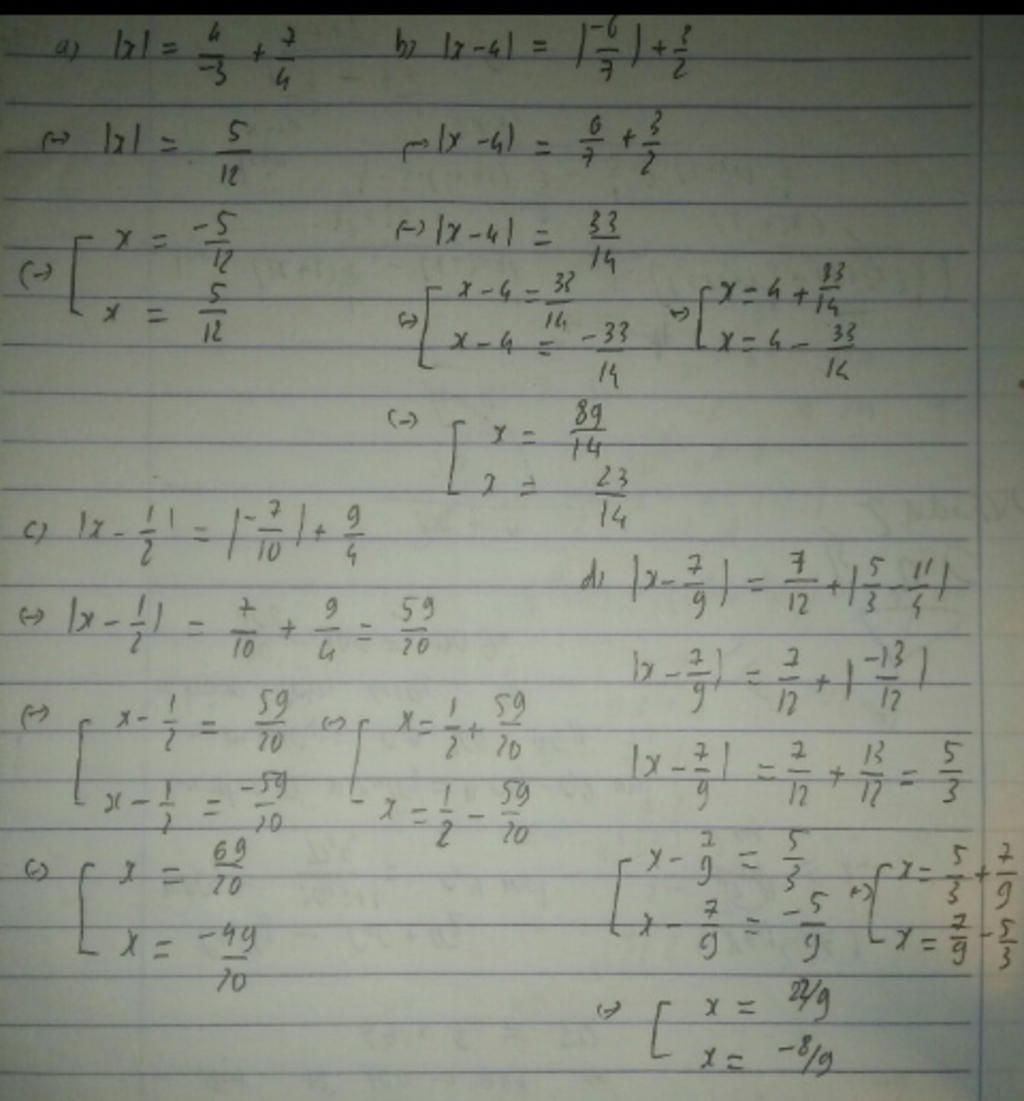 a) |x| = 4/-3 + 7/4
b) |x-4| = |-6/7| + 3/2
(→) |x| = 5/12
(→) |x-4| = 6/7 + 3/2
(→) [ x = -5/12
x = 5/12
(→) |x-4| = 33/14
(→) [ x-4 = 33/14
x-4 = -33/14
(→) [ x = 4 + 33/14
x = 4 - 33/14
(→) [ x = 89/14
x = 23/14
c) |x - 1/2| = |-7/10| + 9/4
(→) |x - 1/2| = 7/10 + 9/4 = 59/20
(→) [ x - 1/2 = 59/20
x - 1/2 = -59/20
(→) [ x = 1/2 + 59/20
x = 1/2 - 59/20
(→) [ x = 69/20
x = -49/20
d) |x - 7/9| = 7/12 + |5/3 - 11/4|
|x - 7/9| = 7/12 + |-13/12|
|x - 7/9| = 7/12 + 13/12 = 5/3
[ x - 7/9 = 5/3
x - 7/9 = -5/9
(→) [ x = 5/3 + 7/9
x = 7/9 - 5/3
(→) [ x = 22/9
x = -8/9